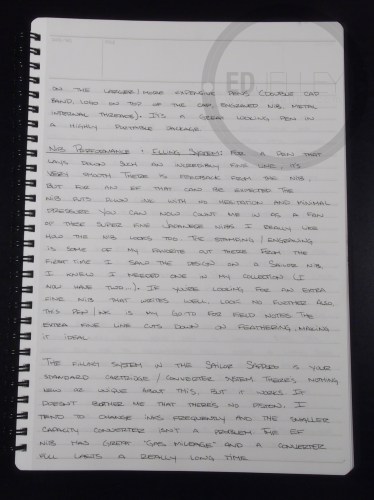 ED JELLEY
on the larger/more expensive pens (double cap
band, logo on top of the cap, engraved nib, metal
internal threads). It's a great looking pen in
a highly portable package.
Nib Performance + Filling System: For a pen that
lays down such an incredibly fine line, it's
very smooth. There is feedback from the nib,
but for an EF that can be expected. The
nib puts down ink with no hesitation and minimal
pressure. You can now count me in as a fan
of these super fine Japanese nibs. I really like
how the nib looks too. The stamping/engraving
is some of my favorite out there. From the
first time I saw the design on a Sailor nib
I knew I needed one in my collection (I
now have two...). If you're looking for an extra
fine nib that writes well, look no further. Also,
this pen/ink is my go to for Field Notes. The
extra fine line cuts down on feathering, making
it ideal.
The filling system in the Sailor Sapporo is your
standard cartridge/converter system. There's nothing
new or unique about this, but it works. It
doesn't bother me that there's no piston. I
tend to change inks frequently and the smaller
capacity converter isn't a problem. The EF
nib has great "gas mileage" and a converter
full lasts a really long time.